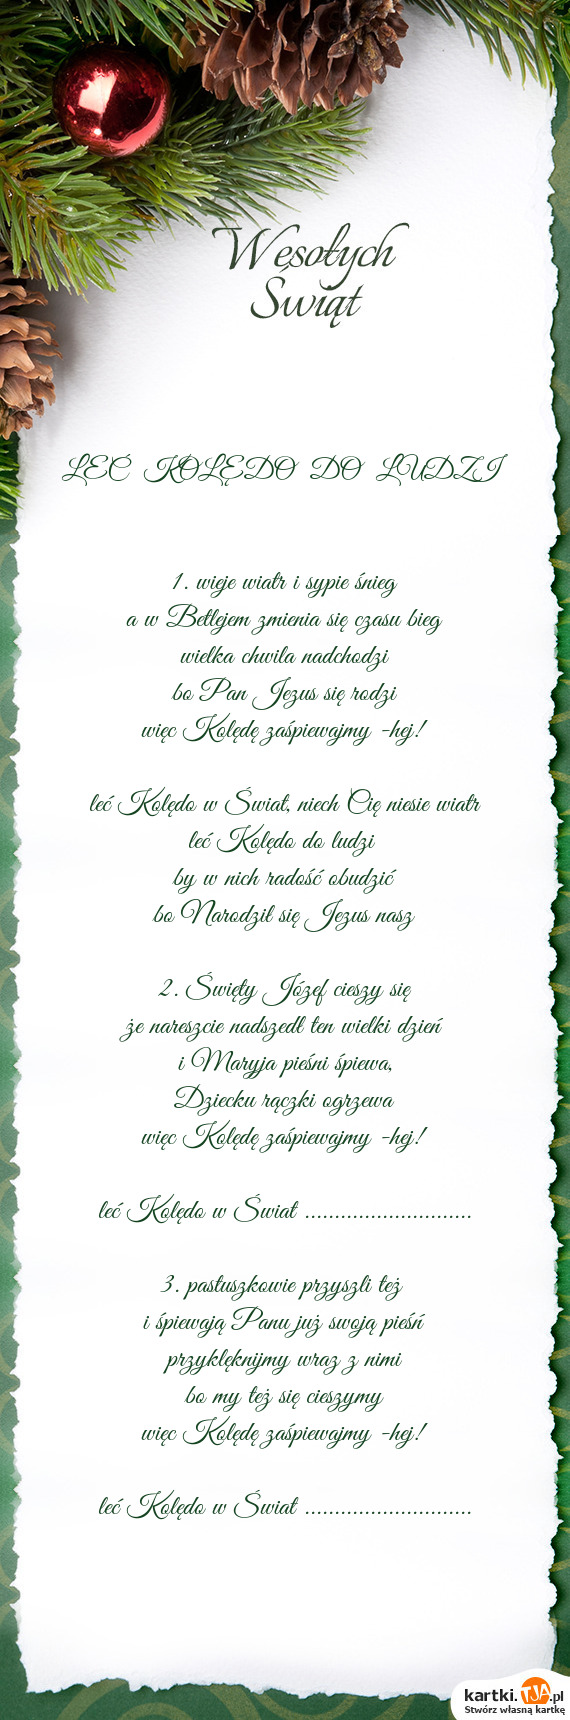 Wesołych
Świąt
LEĆ KOLĘDO DO LUDZI
1. wieje wiatr i sypie śnieg
a w Betlejem zmienia się czasu bieg
wielka chwila nadchodzi
bo Pan Jezus się rodzi
więc Kolędę zaśpiewajmy -hej!
leć Kolędo w Świat, niech Cię niesie wiatr
leć Kolędo do ludzi
by w nich radość obudzić
bo Narodził się Jezus nasz
2. Święty Józef cieszy się
że nareszcie nadszedł ten wielki dzień
i Maryja pieśni śpiewa,
Dziecku rączki ogrzewa
więc Kolędę zaśpiewajmy -hej!
leć Kolędo w Świat ............................
3. pastuszkowie przyszli też
i śpiewają Panu już swoją pieśń
przyklęknijmy wraz z nimi
bo my też się cieszymy
więc Kolędę zaśpiewajmy -hej!
leć Kolędo w Świat ............................
kartki.TJA.pl
Stwórz własną kartkę